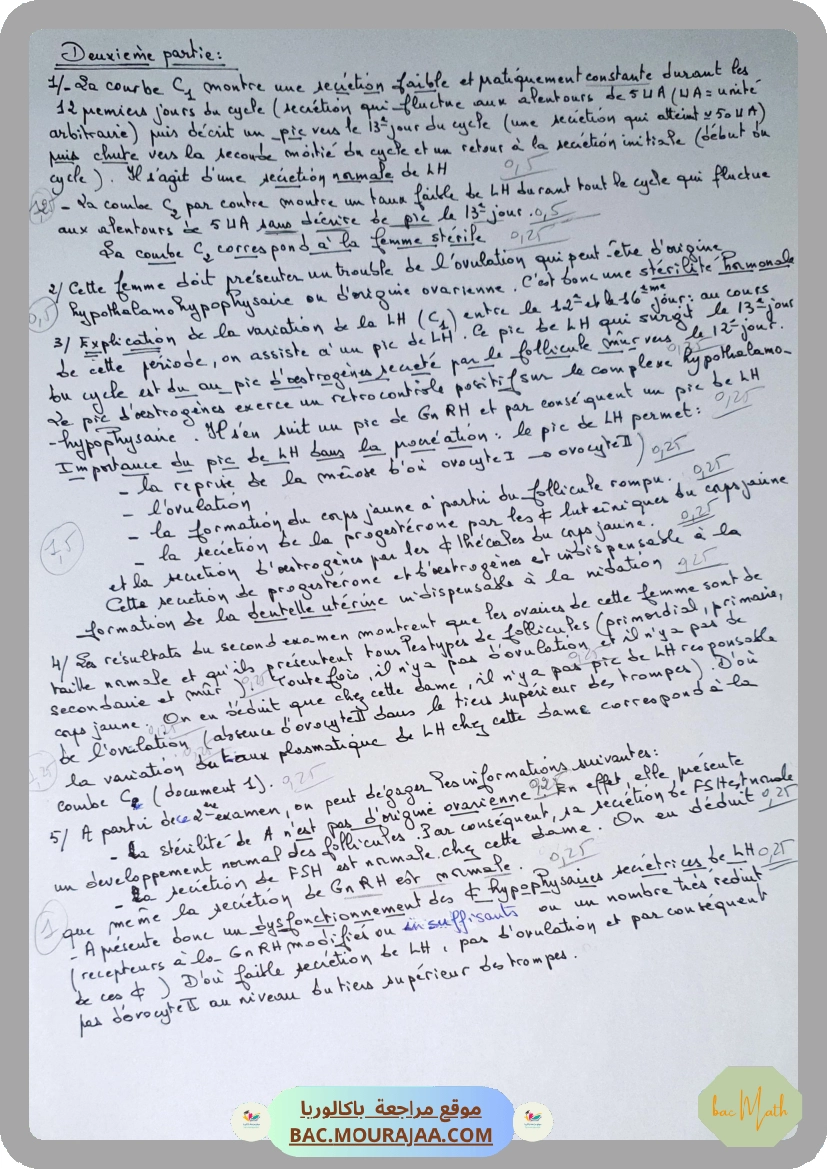 Deuxième partie:
1/- La courbe C1 montre une secrétion faible et pratiquement constante durant les
12 premiers jours du cycle (secrétion qui fluctue aux alentours de 5 UA (UA = unité
arbitraire) puis décrit un pic vers le 13e jour du cycle (une secrétion qui atteint ≃ 50 UA)
puis chute vers la seconde moitié du cycle et un retour à la secrétion initiale (début du
cycle). Il s'agit d'une secrétion normale de LH
0,5
- La courbe C2 par contre montre un taux faible de LH durant tout le cycle qui fluctue
1,25
aux alentours de 5 UA sans décrire de pic le 13e jour. 0,5
La courbe C2 correspond à la femme stérile 0,25
2/ Cette femme doit présenter un trouble de l'ovulation qui peut-être d'origine
hypothalamo hypophysaire ou d'origine ovarienne. C'est donc une stérilité hormonale
0,5
3/ Explication de la variation de la LH (C1) entre le 12e et le 16ème jour: au cours
de cette periode, on assiste à un pic de LH. Ce pic de LH qui surgit le 13e jour
du cycle est du au pic d'oestrogènes secreté par le follicule mûr vers le 12e jour.
0,25
Le pic d'oestrogènes exerce un rétrocontrôle positif sur le complexe hypothalamo-
-hypophysaire. Il s'en suit un pic de GnRH et par conséquent un pic de LH
0,25
Importance du pic de LH dans la procréation: le pic de LH permet:
- la reprise de la méiose d'où ovocyte I → ovocyte II) 0,25
- l'ovulation
- la formation du corps jaune à partir du follicule rompu. 0,25
- la secrétion de la progestérone par les ¢ lutéiniques du corps jaune
1,5
et la secrétion d'oestrogènes par les ¢ thécales du corps jaune. 0,25
Cette secrétion de progestérone et d'oestrogènes est indispensable à la
formation de la dentelle utérine indispensable à la nidation 0,25
4/ Les résultats du second examen montrent que les ovaires de cette femme sont de
taille normale et qu'ils présentent tous les types de follicules (primordial, primaire,
secondaire et mûr). 0,25 Toute fois, il n'ya pas d'ovulation et il n'y a pas de
corps jaune. On en déduit que chez cette dame, il n'y a pas pic de LH responsable
de l'ovulation (absence d'ovocyte II dans le tiers supérieur des trompes). D'où
1,25
la variation du taux plasmatique de LH chez cette dame correspond à la
courbe C2 (document 1). 0,25
5/ A partir de ce 2ème examen, on peut dégager les informations suivantes:
- La stérilité de A n'est pas d'origine ovarienne 0,25 En effet, elle présente
un developpement normal des follicules. Par conséquent, sa secrétion de FSH est normale
- La secrétion de FSH est normale chez cette dame. On en déduit 0,25
que même la secrétion de GnRH est normale. 0,25
1
- A présente donc un dysfonctionnement des ¢ hypophysaires secrétrices de LH 0,25
(recepteurs à la GnRH modifiés ou insuffisants ou un nombre très réduit
de ces ¢) D'où faible secrétion de LH, pas d'ovulation et par conséquent
pas d'ovocyte II au niveau du tiers supérieur des trompes.
موقع مراجعة باكالوريا
BAC.MOURAJAA.COM
bac Math